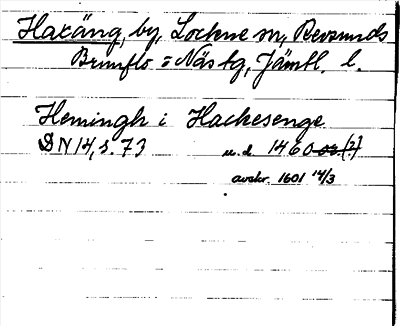 Haxäng, by, Lockne sn, Revsunds
Brunflo o Näs tg, Jämtl. l.
Hemingh i Hackesenge
DN 14, s. 73 u. d. 1460 (?)
avskr. 1601 14/3